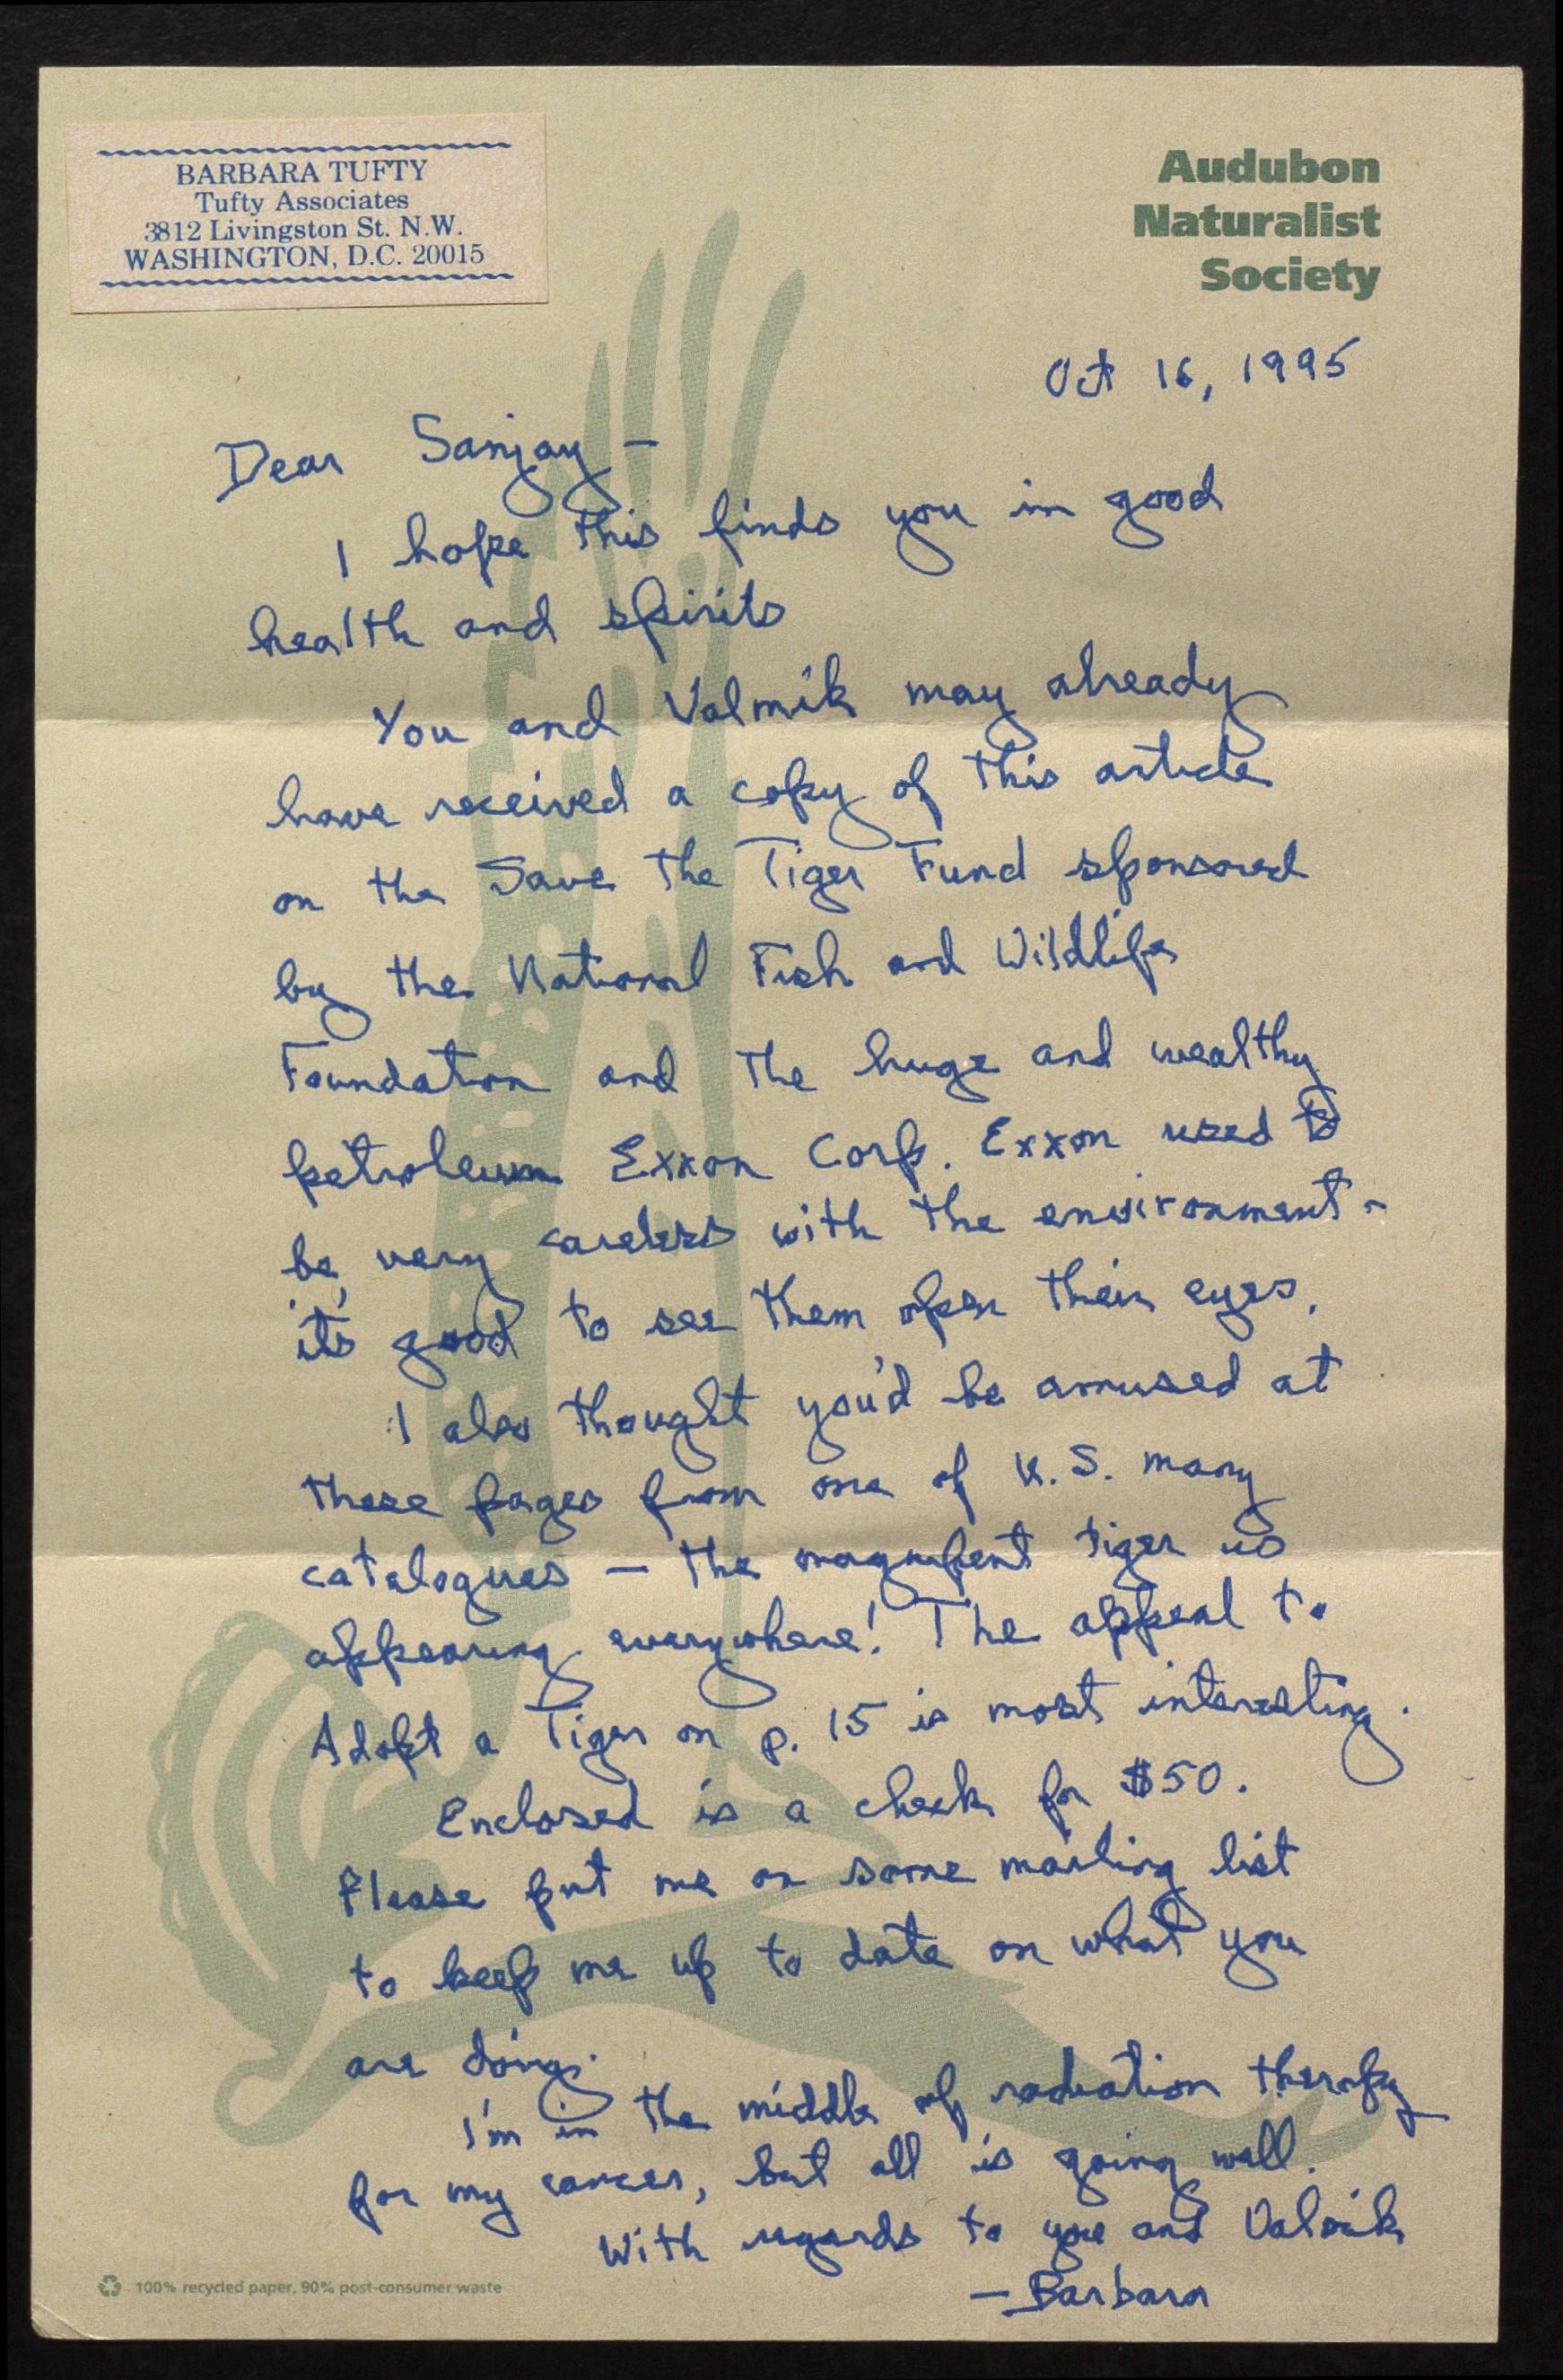 BARBARA TUFTY
Tufty Associates
3812 Livingston St. N.W.
WASHINGTON, D.C. 20015
Audubon
Naturalist
Society
Oct 16, 1995
Dear Sanjay —
I hope this finds you in good
health and spirits
You and Valmik may already
have received a copy of this article
on the Save the Tiger Fund sponsored
by the National Fish and Wildlife
Foundation and the huge and wealthy
petroleum Exxon Corp. Exxon used to
be very careless with the environment -
it's good to see them open their eyes.
I also thought you'd be amused at
these pages from one of U.S. many
catalogues — the magnifent tiger is
appearing everywhere! The appeal to
Adopt a Tiger on p. 15 is most interesting.
Enclosed is a check for $50.
Please put me on some mailing list
to keep me up to date on what you
are doing.
I'm in the middle of radiation therapy
for my cancer, but all is going well.
With regards to you and Valmik
— Barbara
100% recycled paper, 90% post-consumer waste